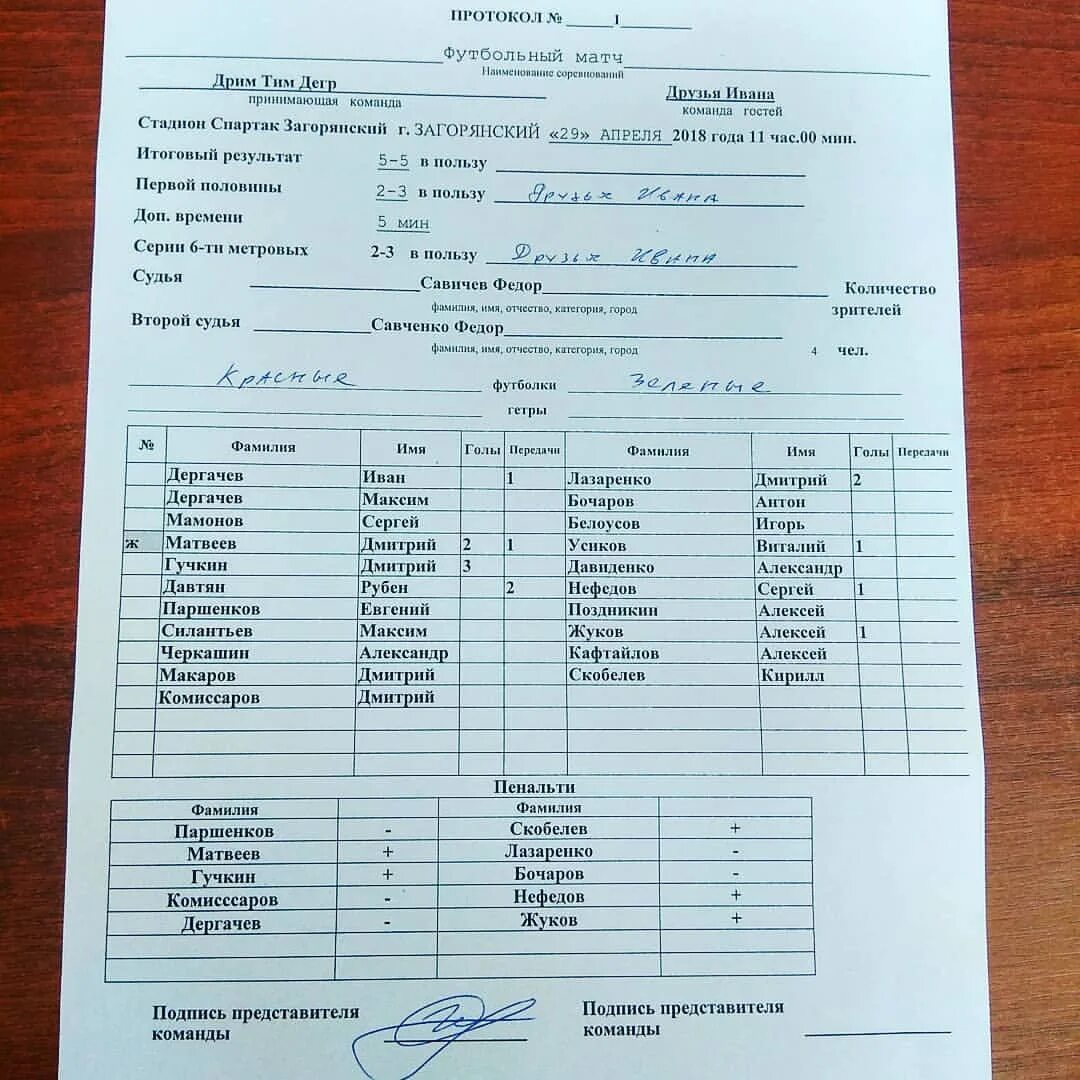 ПРОТОКОЛ № 1
Футбольный матч
Наименование соревнований
Дрим Тим Дегр Друзья Ивана
принимающая команда команда гостей
Стадион Спартак Загорянский г. ЗАГОРЯНСКИЙ «29» АПРЕЛЯ 2018 года 11 час.00 мин.
Итоговый результат 5-5 в пользу
Первой половины 2-3 в пользу Друзья Ивана
Доп. времени 5 мин
Серии 6-ти метровых 2-3 в пользу Друзья Ивана
Судья Савичев Федор Количество
фамилия, имя, отчество, категория, город зрителей
Второй судья Савченко Федор
фамилия, имя, отчество, категория, город 4 чел.
Красные футболки Зеленые
гетры
№ Фамилия Имя Голы Передачи Фамилия Имя Голы Передачи
Дергачев Иван 1 Лазаренко Дмитрий 2
Дергачев Максим Бочаров Антон
Мамонов Сергей Белоусов Игорь
ж Матвеев Дмитрий 2 1 Усиков Виталий 1
Гучкин Дмитрий 3 Давиденко Александр
Давтян Рубен 2 Нефедов Сергей 1
Паршенков Евгений Поздникин Алексей
Силантьев Максим Жуков Алексей 1
Черкашин Александр Кафтайлов Алексей
Макаров Дмитрий Скобелев Кирилл
Комиссаров Дмитрий
Пенальти
Фамилия Фамилия
Паршенков - Скобелев +
Матвеев + Лазаренко -
Гучкин + Бочаров -
Комисссаров - Нефедов +
Дергачев - Жуков +
Подпись представителя Подпись представителя
команды команды